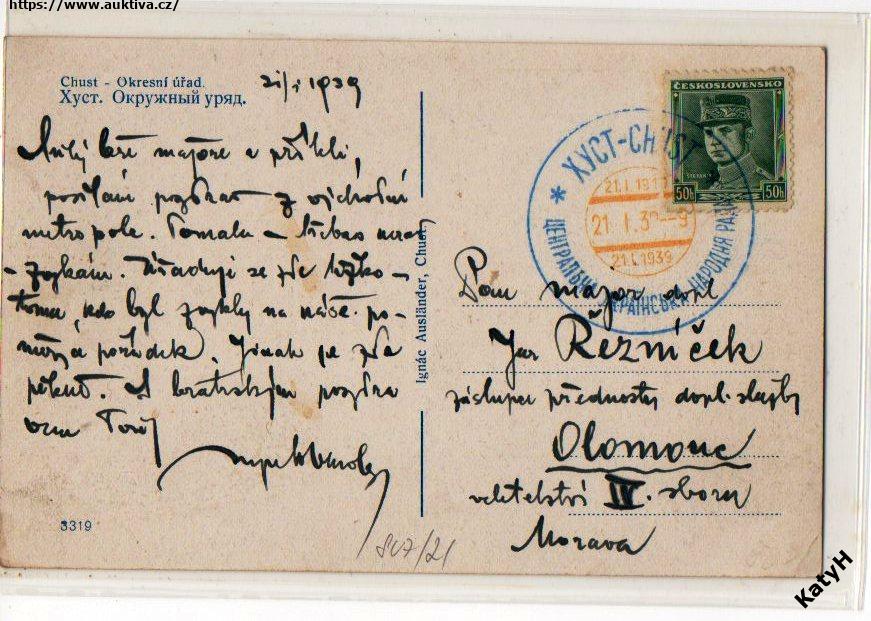 https://www.auktiva.cz/
Chust - Okresní úřad.
Хуст. Окружный уряд.
21/I 1939
Milý brže majore a příteli,
posílám pozdrav z východní
metropole. Pomalu - třebas nerad
- zvykám. Úřaduje se zde těžko -
tomu, kdo byl zvyklý na náš po-
řádek. Jinak je zde
pěkně. S bratrským pozdra
vem Tvůj
3319
Ignác Ausländer, Chust.
ČESKOSLOVENSKO
ŠTEFÁNIK
50h 50h
* ХУСТ-CHUST
ЦЕНТРАЛЬНА УКРАЇНСЬКА НАРОДНЯ РАДА
21.I.1939
21.I.39-9
21.I.1939
Pan major
Jar Řezníček
zástupce přednosty dopl. služby
Olomouc
velitelství IV. sboru
Morava
847/21
KatyH